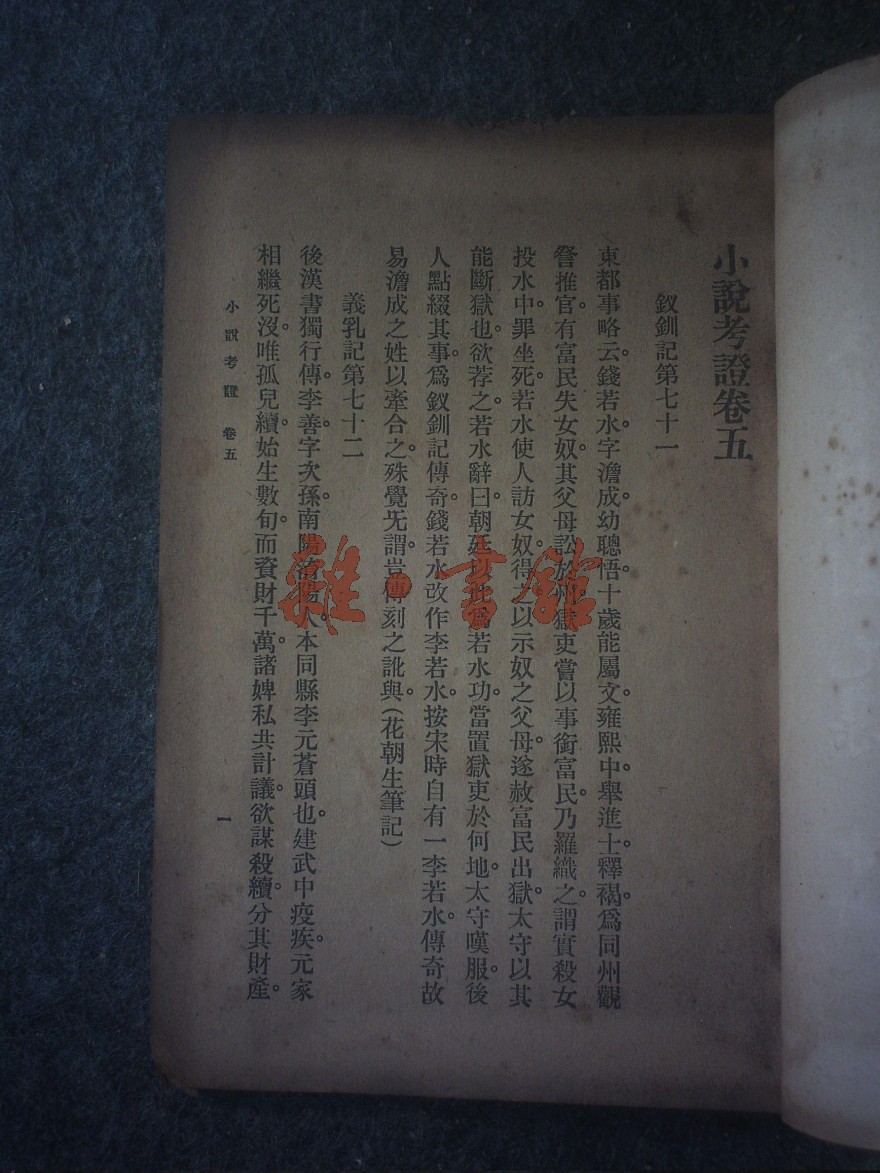 小說考證卷五
釵釧記第七十一
東都事略云。錢若水字澹成。幼聰悟。十歲能屬文。雍熙中。舉進士釋褐。爲同州觀
詧推官。有富民失女奴。其父母訟於州。獄吏嘗以事銜富民。乃羅織之。謂實殺女
投水中。罪坐死。若水使人訪女奴。得之。以示奴之父母。遂赦富民出獄。太守以其
能斷獄也。欲荐之。若水辭曰。朝廷以此爲若水功。當置獄吏於何地。太守嘆服。後
人點綴其事。爲釵釧記傳奇。錢若水改作李若水。按宋時自有一李若水。傳奇故
易澹成之姓以牽合之。殊覺无謂。豈傳刻之訛與。(花朝生筆記)
義乳記第七十二
後漢書獨行傳。李善字次孫。南陽淯陽人。本同縣李元蒼頭也。建武中疫疾。元家
相繼死沒。唯孤兒續。始生數旬。而資財千萬。諸婢私共計議。欲謀殺續。分其財產。
小說考證 卷五
一
雜·書館